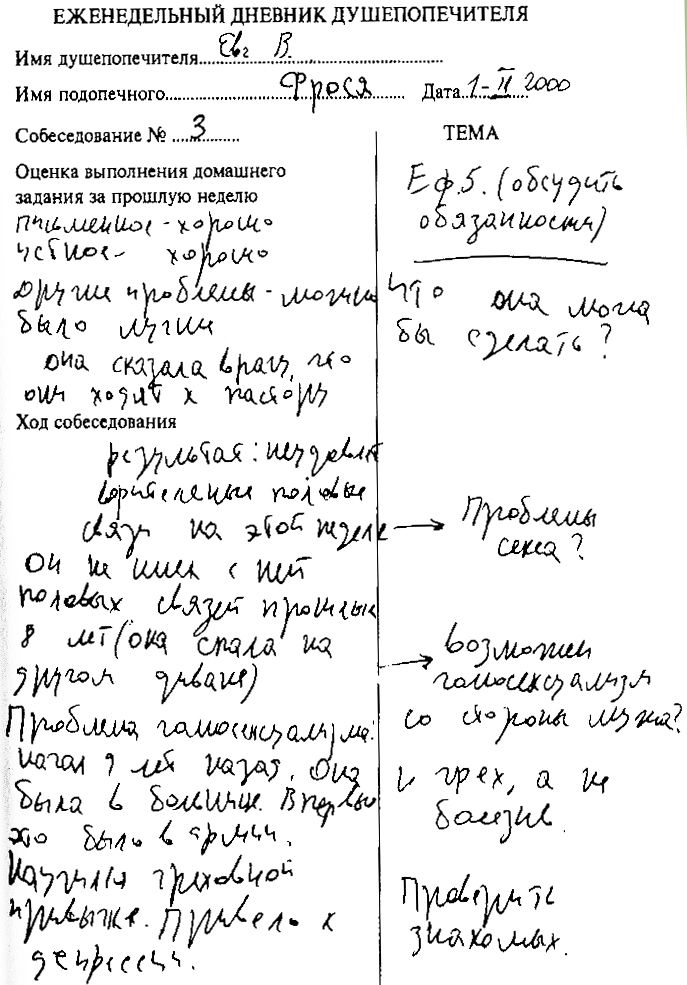 ЕЖЕНЕДЕЛЬНЫЙ ДНЕВНИК ДУШЕПОПЕЧИТЕЛЯ
Имя душепопечителя Евг В.
Имя подопечного Фрося Дата 1-II 2000
Собеседование № 3
Оценка выполнения домашнего
задания за прошлую неделю
письменное - хорошо
устное - хорошо
Другие проблемы - можно
было лучше
она сказала врачу, что
они ходят к пастору
Ход собеседования
результат: неудовлет
ворительные половые
связи на этой неделе
Он не имел с ней
половых связей прошлые
8 лет (она спала на
другом диване)
Проблема гомосексуализма:
начал 9 лет назад. Она
была в больнице. Впервые
это было в армии.
Научился греховной
привычке. Привело к
депрессии.
ТЕМА
Еф.5. (обсудить
обязанности)
Что она могла
бы сделать?
Проблемы
секса?
Возможен
гомосексуализм
со стороны мужа?
грех, а не
болезнь.
Проверить
знакомых.